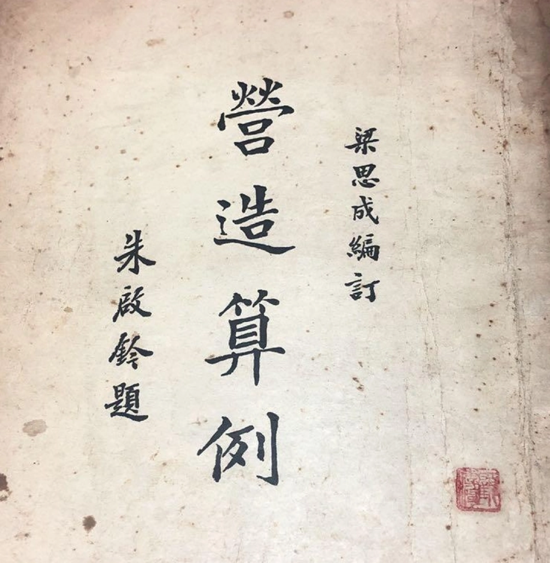 梁思成編訂
營造算例
朱啟鈐題